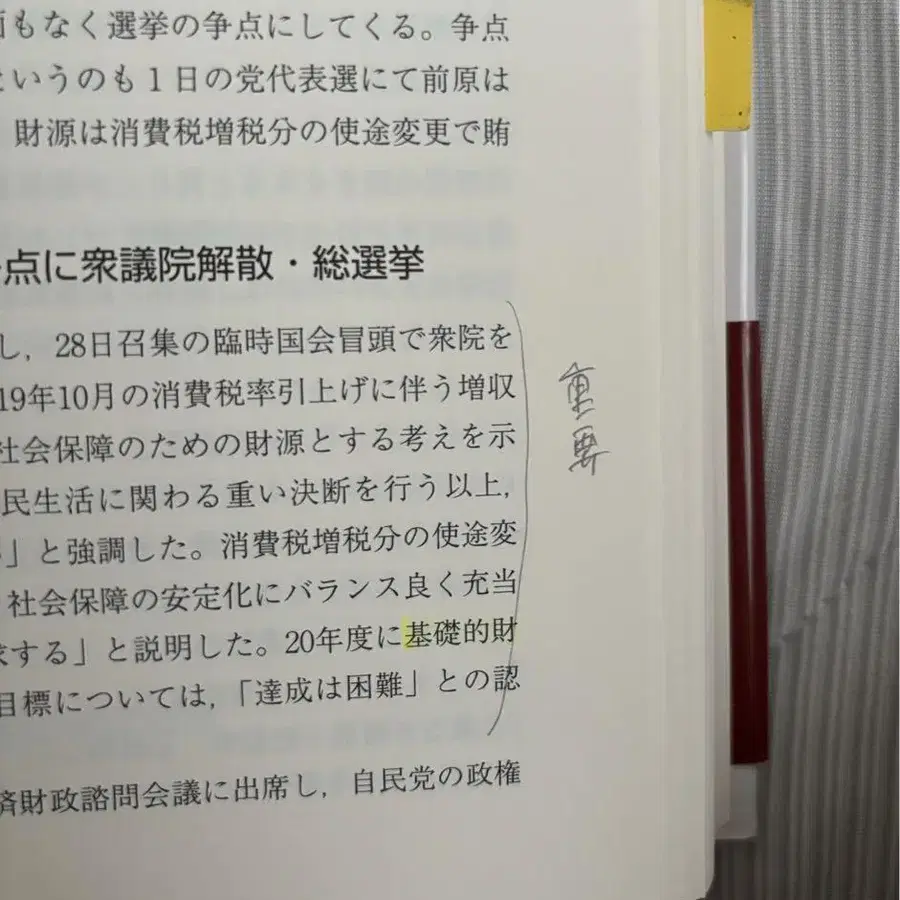 もなく選挙の争点にしてくる。争点
というのも1日の党代表選にて前原は
財源は消費税増税分の使途変更で賄
点に衆議院解散・総選挙
し，28日召集の臨時国会冒頭で衆院を
19年10月の消費税率引上げに伴う増収
社会保障のための財源とする考えを示
民生活に関わる重い決断を行う以上，
」と強調した。消費税増税分の使途変
社会保障の安定化にバランス良く充当
求する」と説明した。20年度に基礎的財
目標については，「達成は困難」との認
済財政諮問会議に出席し，自民党の政権
重要